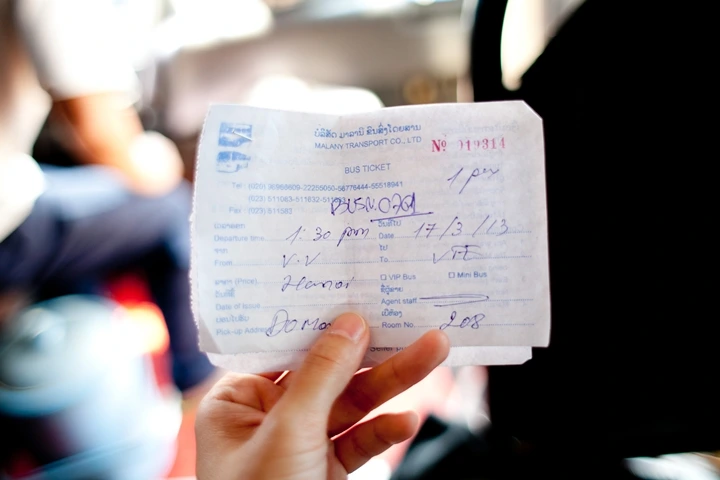 ບໍລິສັດ ມາລານີ ຂົນສົ່ງໂດຍສານ
MALANY TRANSPORT CO., LTD
Nº 019314
BUS TICKET
1 per
Tel : (020) 56969609-22255050-56776444-55518941
(023) 511083-511632-511
BUS N. 0761
Fax : (023) 511583
ເວລາອອກ ວັນທີໄປ
Departure time 1:30 pm Date 17/3/13
ຈາກ ໄປ
From V.V To VTE
ລາຄາ (Price) Hanoi VIP Bus Mini Bus
ວັນທີ່ ຊື່ຜູ້ຂາຍ
Date of issue Agent staff
ເບີຫ້ອງ
Pick-up Address Room No. 208